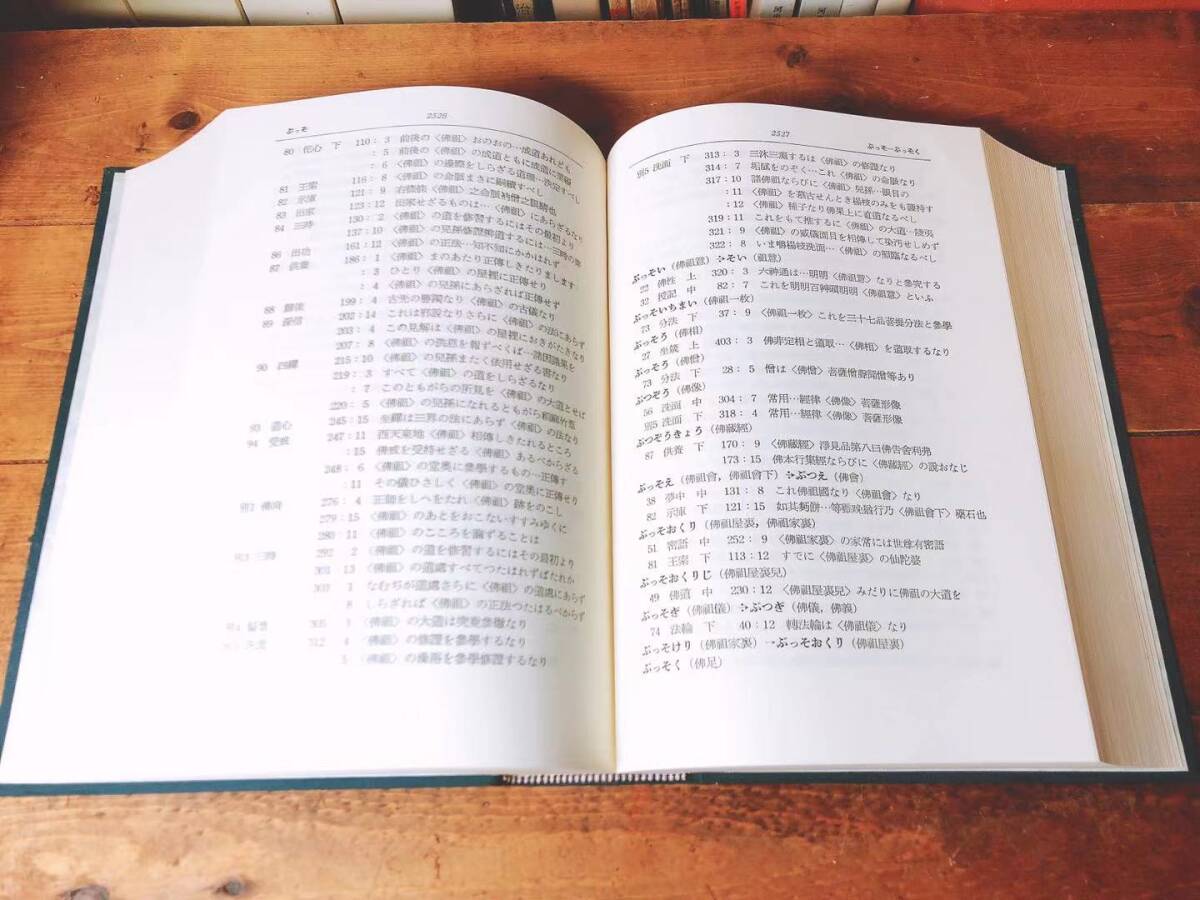 ぶっそ 2526
80 佗心 下 110: 3 前後の〈佛祖〉おのおの…成道あれども
: 5 前後の〈佛祖〉の成道ともに成道に
: 6 〈佛祖〉の邊際をしらざる道理…決定すべし
81 王索 116: 8 〈佛祖〉の命脈まさに嗣續すべし
82 示庫 121: 9 右條條〈佛祖〉之命脈衲僧之眼睛也
83 出家 123:12 出家せざるものは…〈佛祖〉にあらざるなり
84 三時 130: 2 〈佛祖〉の道を修習するにはその最初より
137:10 〈佛祖〉の兒孫修證辨道するには…三時の業
86 出功 161:12 〈佛祖〉の正法…知不知にかかはれず
87 供養 186: 1 〈佛祖〉まのあたり正傳しきたりまします
: 3 ひとり〈佛祖〉の屋裡に正傳せり
: 4 〈佛祖〉の兒孫にあらざれば正傳せず
88 歸依 199: 4 古先の勝躅なり〈佛祖〉の古儀なり
89 深信 202:14 これは邪説なりさらに〈佛祖〉の法にあらず
203: 4 この見解は〈佛祖〉の屋裡におきがたきなり
207: 8 〈佛祖〉の洪恩を報ずべくば…諸因諸果を
90 四禪 215:10 〈佛祖〉の兒孫またく依用せざる書なり
219: 3 すべて〈佛祖〉の道をしらざるなり
: 7 このともがらの所見を〈佛祖〉の大道とせば
220: 5 〈佛祖〉の兒孫になれるともがら
93 道心 245:15 坐禪は三界の法にあらず〈佛祖〉の法なり
94 受戒 247:11 西天東地〈佛祖〉相傳しきたれるところ
:15 佛戒を受持せざる〈佛祖〉あるべからざる
248: 6 〈佛祖〉の堂奥に參學するもの…正傳す
:11 その儀ひさしく〈佛祖〉の堂奥に正傳せり
別1 佛向 276: 4 正師をしへをたれ〈佛祖〉跡をのこし
279:15 〈佛祖〉のあとをおこないすすみゆくに
280:11 〈佛祖〉のこころを論ずることは
別3 三時 292 2 〈佛祖〉の道を修習するにはその最初より
301 13 〈佛祖〉の道處すべてつたはれずばたれか
303 1 なむぢが道處さらに〈佛祖〉の道處にあらず
8 しらざれば〈佛祖〉の正法つたはるべからず
305 〈佛祖〉の大道は究竟參徹なり
312 4 〈佛祖〉の修證を參學するなり
5 〈佛祖〉の邊際を參學修證するなり
2527 ぶっそ―ぶっそく
別5 洗面 下 313: 3 三沐三薰するは〈佛祖〉の修證なり
314: 7 垢膩をのぞく…これ〈佛祖〉の命脈なり
317:10 諸佛祖ならびに〈佛祖〉兒孫…眼目の
:11 〈佛祖〉を慕古せんとき楊枝のみをも護持す
:12 〈佛祖〉種子なり佛果上に直道なるべし
319:11 これをもて推するに〈佛祖〉の大道…陵夷
321: 9 〈佛祖〉の威儀面目を相傳して染汚せしめず
322: 8 いま嚼楊枝洗面…〈佛祖〉の照臨なるべし
ぶっそい（佛祖意）→そい（祖意）
22 佛性 上 320: 3 六神通は…明明〈佛祖意〉なりと參究する
32 授記 中 82: 7 これを明明百艸頭明明〈佛祖意〉といふ
ぶっそいちまい（佛祖一枚）
73 分法 下 37: 9 〈佛祖一枚〉これを三十七品菩提分法と參學
ぶっそう（佛相）
27 坐箴 上 403: 3 佛非定相と道取…〈佛相〉を道取するなり
ぶっそう（佛僧）
73 分法 下 28: 5 僧は〈佛僧〉菩薩僧聲聞僧等あり
ぶつぞう（佛像）
56 洗面 中 304: 7 常用…經律〈佛像〉菩薩形像
別5 洗面 下 318: 4 常用…經律〈佛像〉菩薩形像
ぶつぞうきょう（佛藏經）
87 供養 下 170: 9 〈佛藏經〉淨見品第八曰佛告舍利弗
173:15 佛本行集經ならびに〈佛藏經〉の説おなじ
ぶっそえ（佛祖會，佛祖會下）→ぶつえ（佛會）
38 夢中 中 131: 8 これ佛祖國なり〈佛祖會〉なり
82 示庫 下 121:15 如其麪餠…等〈佛祖會下〉藥石也
ぶっそおくり（佛祖屋裏，佛祖家裏）
51 密語 中 252: 9 〈佛祖家裏〉の家常には世尊有密語
81 王索 下 113:12 すでに〈佛祖屋裏〉の仙陀婆
ぶっそおくりじ（佛祖屋裏兒）
49 佛道 中 230:12 〈佛祖屋裏兒〉みだりに佛祖の大道を
ぶっそぎ（佛祖儀）→ぶつぎ（佛儀，佛義）
74 法輪 下 40:12 轉法輪は〈佛祖儀〉なり
ぶっそけり（佛祖家裏）→ぶっそおくり（佛祖屋裏）
ぶっそく（佛足）